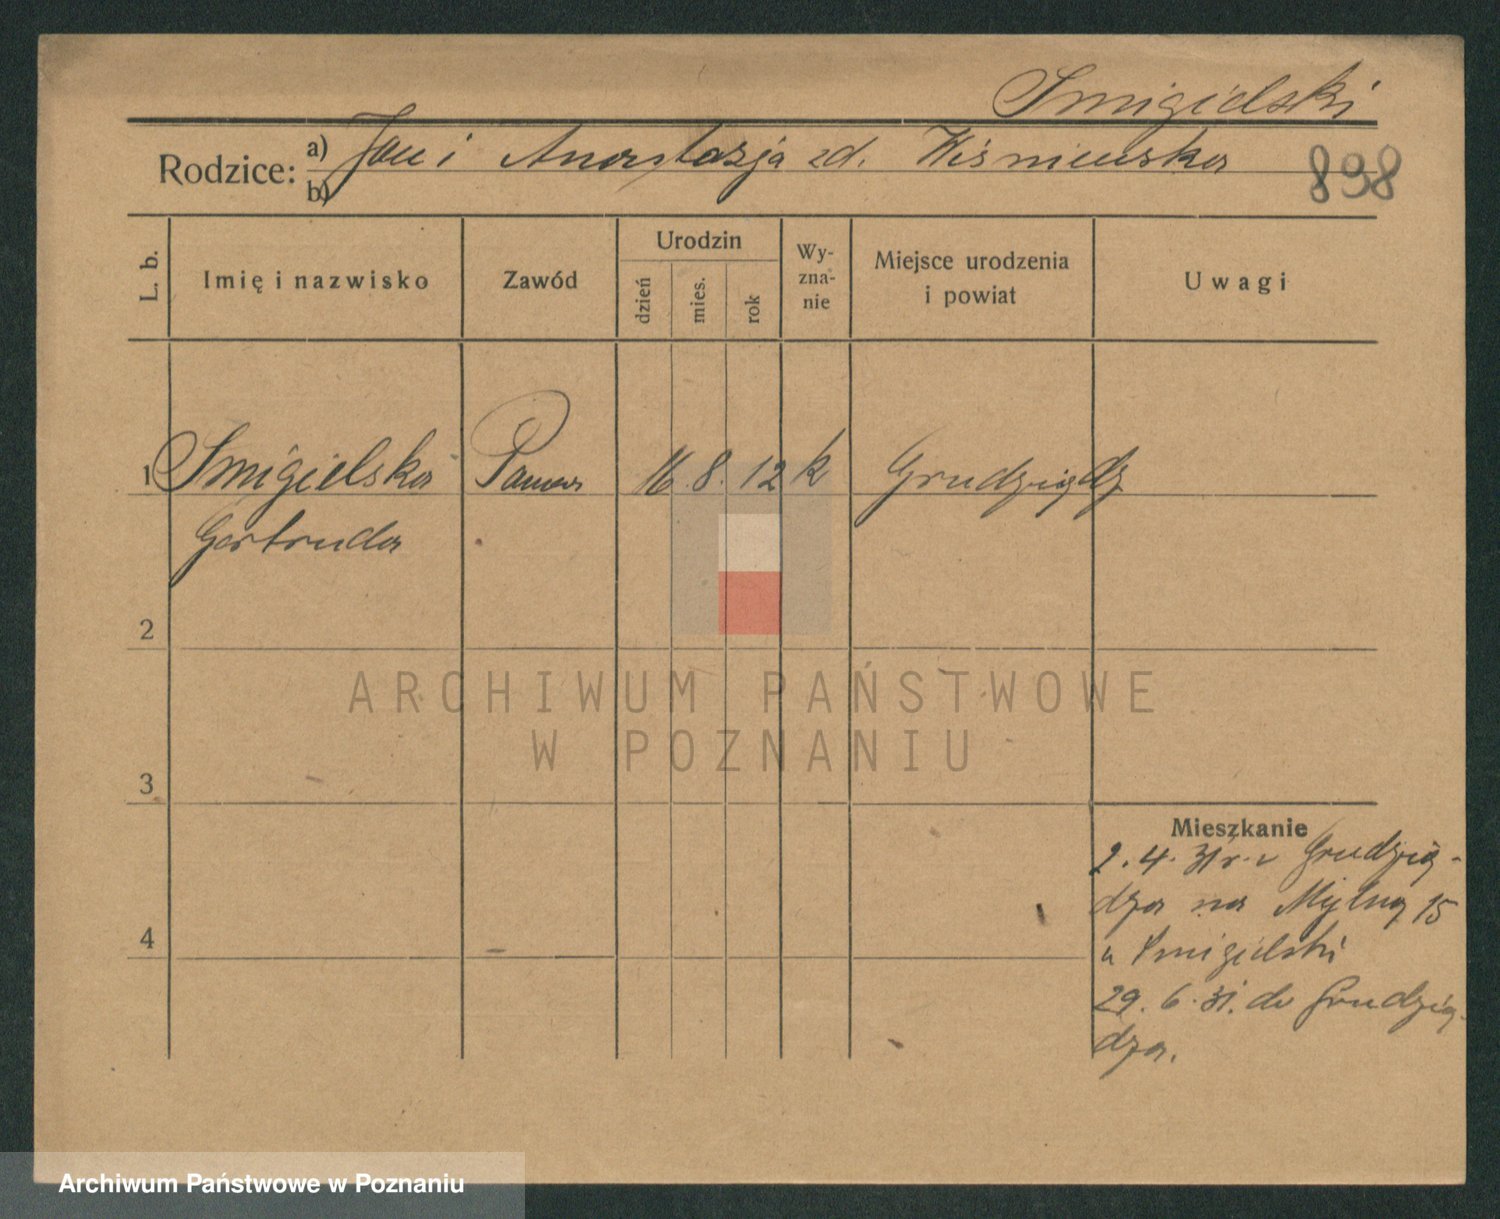 Smigielski
Rodzice: a) Jan i Anastazja zd. Wiśniewska
b)
898
L. b.
Imię i nazwisko
Zawód
Urodzin
dzień
mies.
rok
Wy-
zna-
nie
Miejsce urodzenia
i powiat
Uwagi
1 Smigielska Panna 16. 8. 12 k Grudziądz
Gertruda
2
3
4
ARCHIWUM PAŃSTWOWE
W POZNANIU
Mieszkanie
2. 4. 31 r. z Grudzią-
dza na Mylną 15
u Smigielski
29. 6. 31. do Grudzią-
dza.
Archiwum Państwowe w Poznaniu